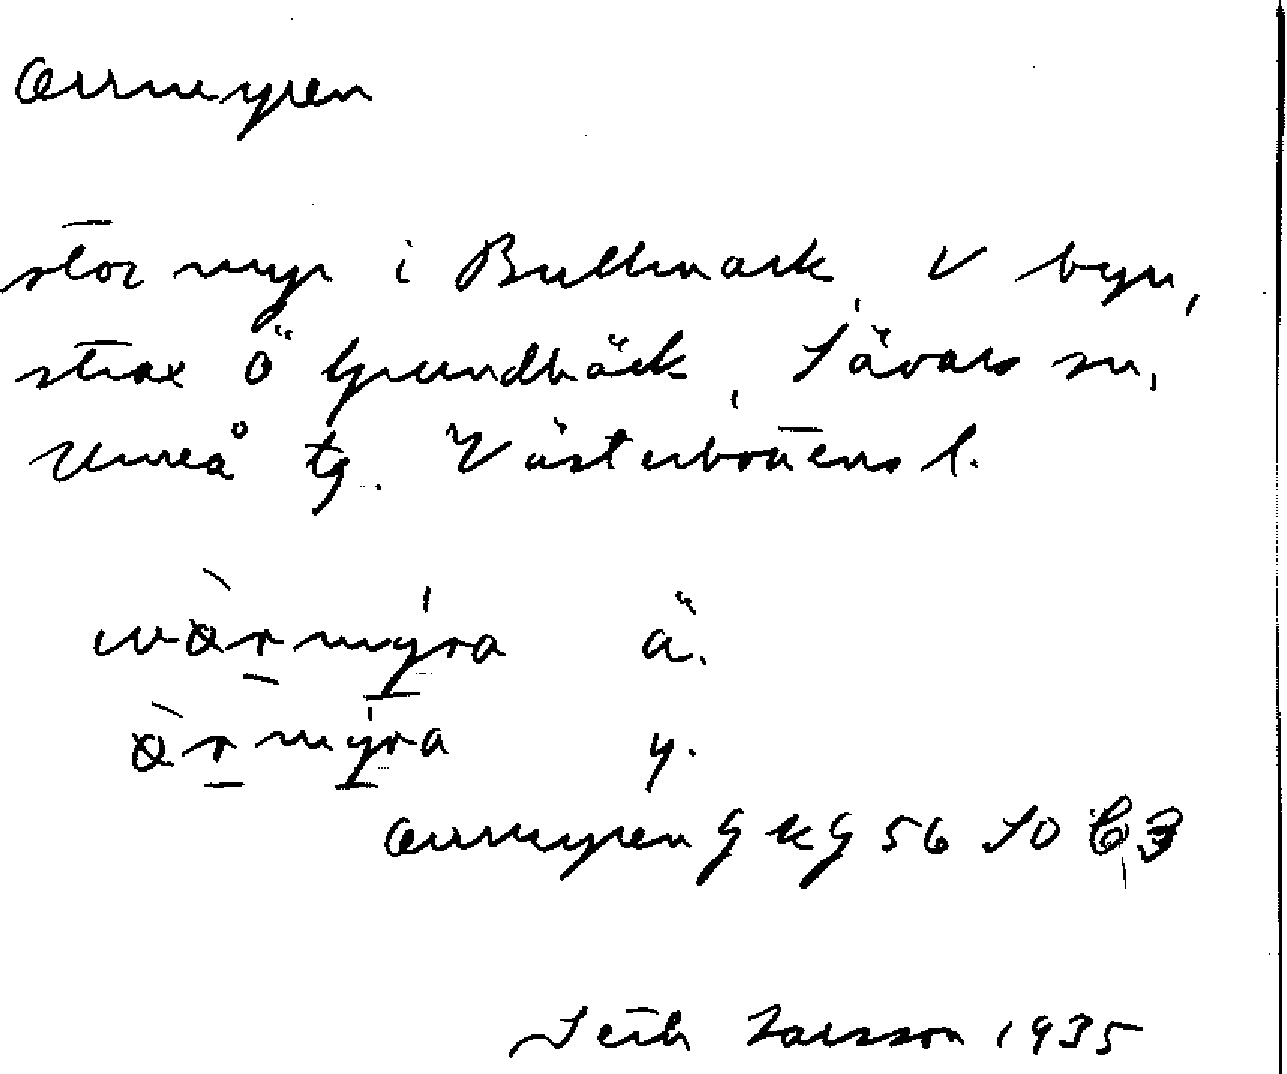 Orrmyren
stor myr i Bullmark, V byn,
strax Ö Grundbäck, Sävars sn,
Umeå tg. Västerbottens l.
wòrmýra ä.
òrmýra y.
Orrmyren G k G 56 SO C, 3
Seth Larsson 1935